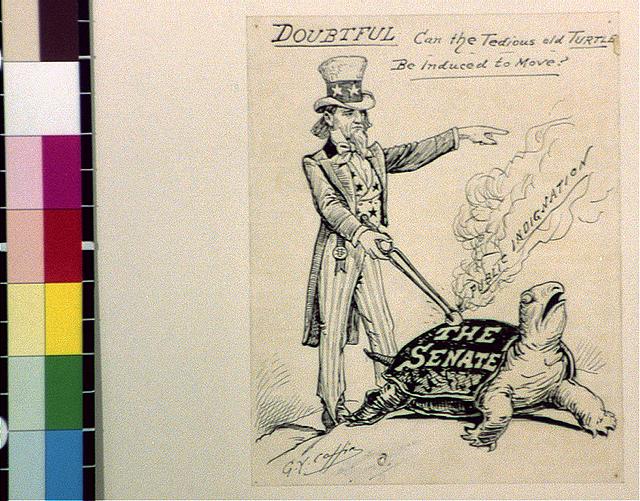 DOUBTFUL Can the Tedious old TURTLE
Be Induced to Move?
PUBLIC INDIGNATION
THE
SENATE
G.Y. Coffin